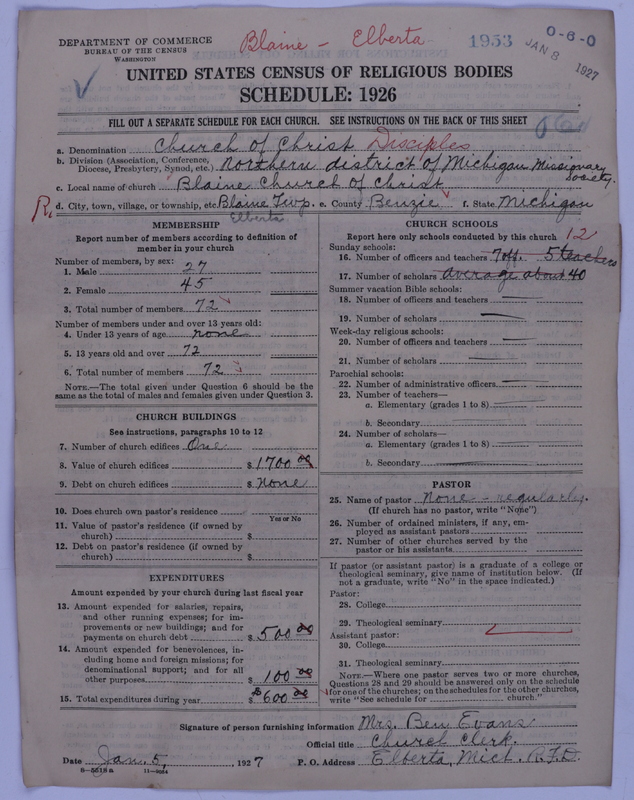 DEPARTMENT OF COMMERCE
BUREAU OF THE CENSUS
WASHINGTON
Blaine - Elberta
1953
0-6-0
JAN 8 1927
UNITED STATES CENSUS OF RELIGIOUS BODIES
SCHEDULE: 1926
FILL OUT A SEPARATE SCHEDULE FOR EACH CHURCH. SEE INSTRUCTIONS ON THE BACK OF THIS SHEET
a. Denomination Church of Christ Disciples
b. Division (Association, Conference, Diocese, Presbytery, Synod, etc.) Northern district of Michigan Missionary Society.
c. Local name of church Blaine Church of Christ
R. d. City, town, village, or township, etc. Blaine Twp. e. County Benzie f. State Michigan
Elberta
MEMBERSHIP
Report number of members according to definition of
member in your church
Number of members, by sex:
1. Male 27
2. Female 45
3. Total number of members 72
Number of members under and over 13 years old:
4. Under 13 years of age none
5. 13 years old and over 72
6. Total number of members 72
NOTE.—The total given under Question 6 should be the
same as the total of males and females given under Question 3.
CHURCH BUILDINGS
See instructions, paragraphs 10 to 12
7. Number of church edifices One
8. Value of church edifices $ 1700 00
9. Debt on church edifices $ None
10. Does church own pastor's residence?
Yes or No
11. Value of pastor's residence (if owned by
church) $
12. Debt on pastor's residence (if owned by
church) $
EXPENDITURES
Amount expended by your church during last fiscal year
13. Amount expended for salaries, repairs,
and other running expenses; for im-
provements or new buildings; and for
payments on church debt $ 500 00
14. Amount expended for benevolences, in-
cluding home and foreign missions; for
denominational support; and for all
other purposes $ 100 00
15. Total expenditures during year $ 600 00
CHURCH SCHOOLS
Report here only schools conducted by this church 12
Sunday schools:
16. Number of officers and teachers 7 off. 5 teachers
17. Number of scholars average about 40
Summer vacation Bible schools:
18. Number of officers and teachers
19. Number of scholars
Week-day religious schools:
20. Number of officers and teachers
21. Number of scholars
Parochial schools:
22. Number of administrative officers
23. Number of teachers—
a. Elementary (grades 1 to 8)
b. Secondary
24. Number of scholars—
a. Elementary (grades 1 to 8)
b. Secondary
PASTOR
25. Name of pastor None - regularly.
(If church has no pastor, write "None")
26. Number of ordained ministers, if any, em-
ployed as assistant pastors
27. Number of other churches served by the
pastor or his assistants
If pastor (or assistant pastor) is a graduate of a college or
theological seminary, give name of institution below. (If
not a graduate, write "No" in the space indicated.)
Pastor:
28. College
29. Theological seminary
Assistant pastor:
30. College
31. Theological seminary
NOTE.—Where one pastor serves two or more churches,
Questions 28 and 29 should be answered only on the schedule
for one of the churches; on the schedules for the other churches,
write "See schedule for church."
Signature of person furnishing information Mrs. Ben Evans
Official title Church Clerk.
Date Jan. 5, 1927 P. O. Address Elberta, Mich. R.F.D.
8-5518a 11-9024